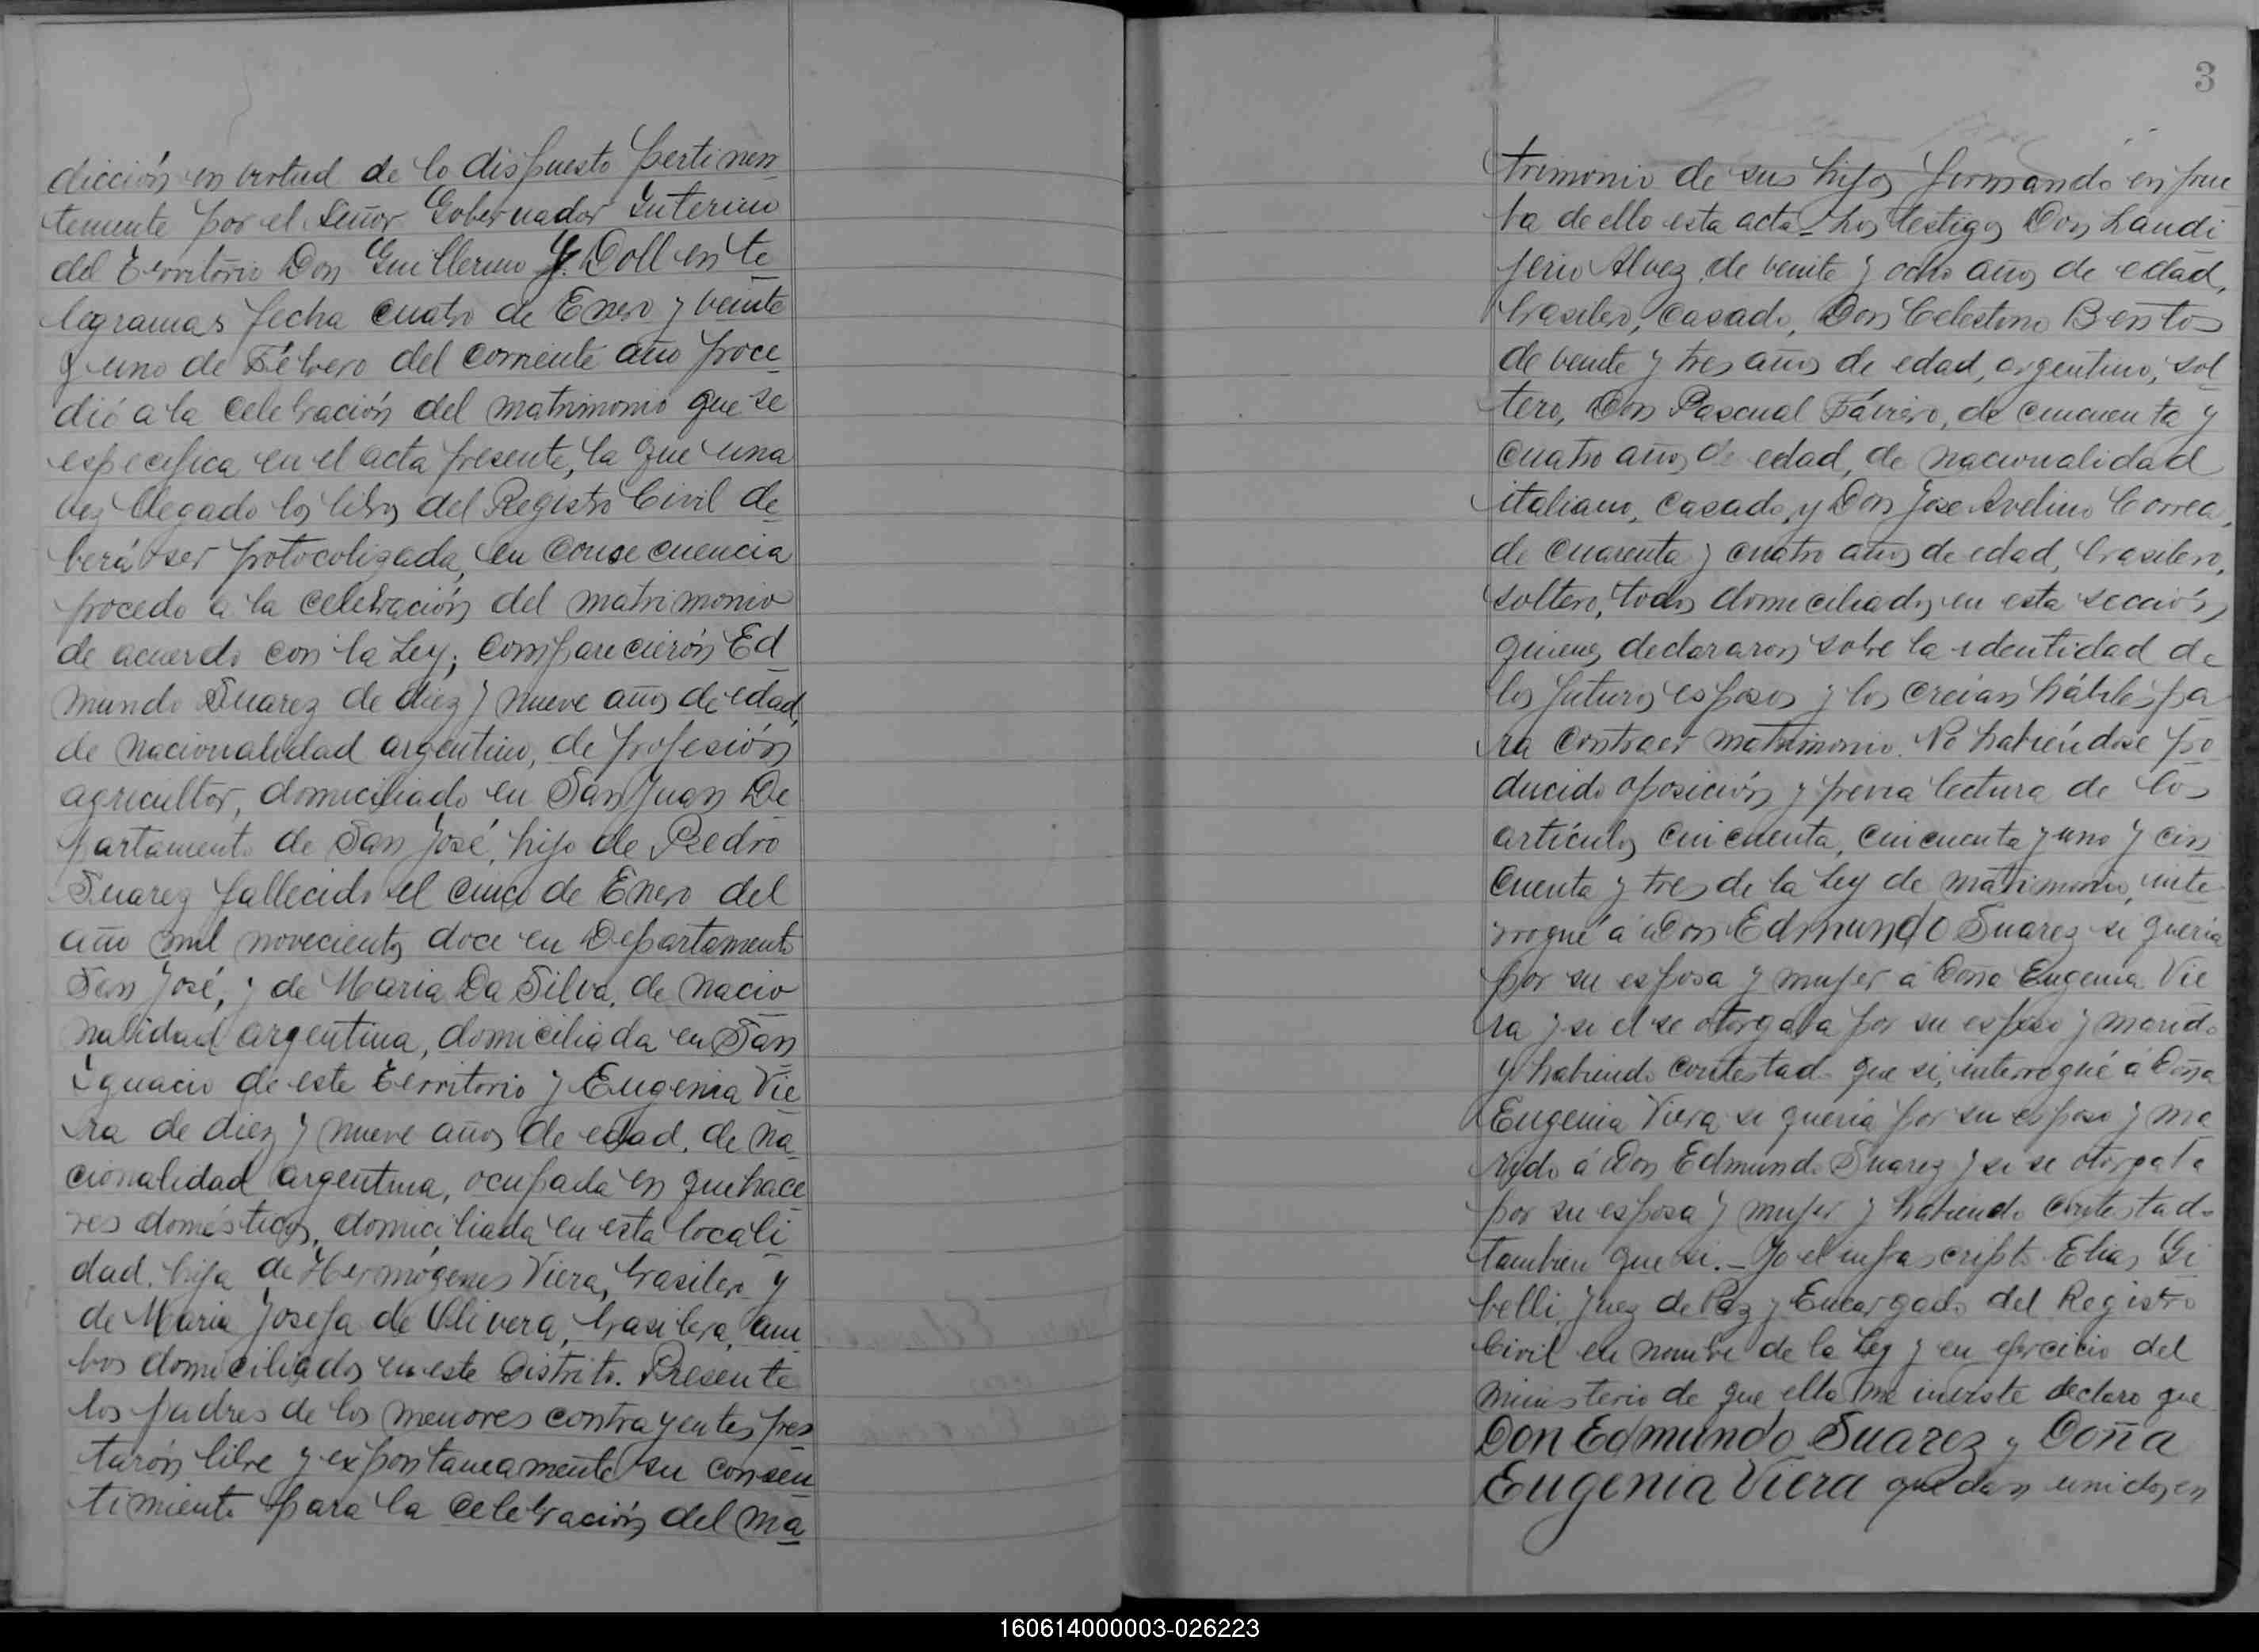 dicción en virtud de lo dispuesto pertinen
temente por el Señor Gobernador Interino
del Territorio Don Guillermo J. Doll en te
legramas fecha cuatro de Enero y veinte
y uno de Febrero del corriente año proce
dió a la celebración del matrimonio que se
especifica en el acta presente, la que una
vez llegado los libros del Registro Civil de
berá ser protocolizada, en consecuencia
procedo a la celebración del matrimonio
de acuerdo con la Ley; comparecierón Ed
mundo Suarez de diez y nueve años de edad,
de nacionalidad argentino, de profesión
agricultor, domiciliado en San Juan De
partamento de San José, hijo de Pedro
Suarez fallecido el cinco de Enero del
año mil novecientos doce en Departamento
San José, y de Maria Da Silva, de nacio
nalidad argentina, domiciliada en San
Ignacio de este Territorio y Eugenia Vie
ra de diez y nueve años de edad, de na
cionalidad argentina, ocupada en quehace
res domésticos, domiciliada en esta locali
dad, hija de Hermógenes Viera, brasilero y
de Maria Josefa de Olivera, brasilera, am
bos domiciliados en este Distrito. Presente
los padres de los menores contrayentes pres
tarón libre y expontaneamente su consen
timiento para la celebración del ma
3
trimonio de sus hijos firmando en prue
ba de ello esta acta - Los testigos Don Landi
ferio Alvez, de veinte y ocho años de edad,
brasilero, casado, Don Celestino Bentos
de veinte y tres años de edad, argentino, sol
tero, Don Pascual Fávero, de cincuenta y
cuatro años de edad, de nacionalidad
italiano, casado, y Don Jose Avelino Correa,
de cuarenta y cuatro años de edad, brasilero,
soltero, todos domiciliados en esta sección,
quienes declararon sobre la identidad de
los futuros esposos y los creían hábiles pa
ra contraer matrimonio. No habiéndose pro
ducido oposición y previa lectura de los
artículos cincuenta, cincuenta y uno y cin
cuenta y tres de la Ley de matrimonio, inte
rrogué á Don Edmundo Suarez si quería
por su esposa y mujer á Doña Eugenia Vie
ra y si el se otorgaba por su esposo y marido
y habiendo contestado que sí, interrogué á Doña
Eugenia Viera si quería por su esposo y ma
rido á Don Edmundo Suarez y si se otorgaba
por su esposa y mujer y habiendo contestado
tambien que si. - Yo el infrascripto Elias Gi
belli Juez de Paz y Encargado del Registro
Civil en nombre de la Ley y en ejercicio del
ministerio de que ella me inviste declaro que
Don Edmundo Suarez y Doña
Eugenia Viera quedan unidos en
160614000003-026223